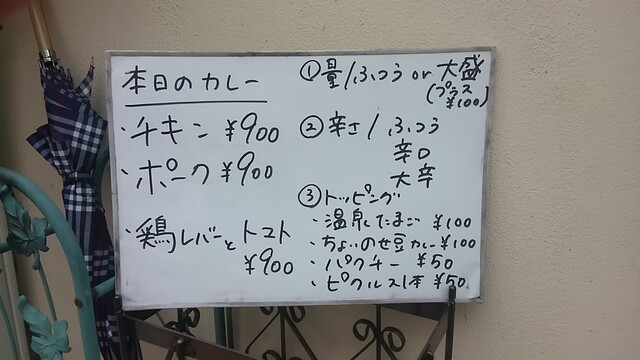 本日のカレー
・チキン ¥900
・ポーク ¥900
・鶏レバーとトマト
¥900
①量/ふつう or 大盛
(プラス
¥100)
②辛さ/ふつう
辛口
大辛
③トッピング
・温泉たまご ¥100
・ちょいのせ豆カレー ¥100
・パクチー ¥50
・ピクルス1本 ¥50